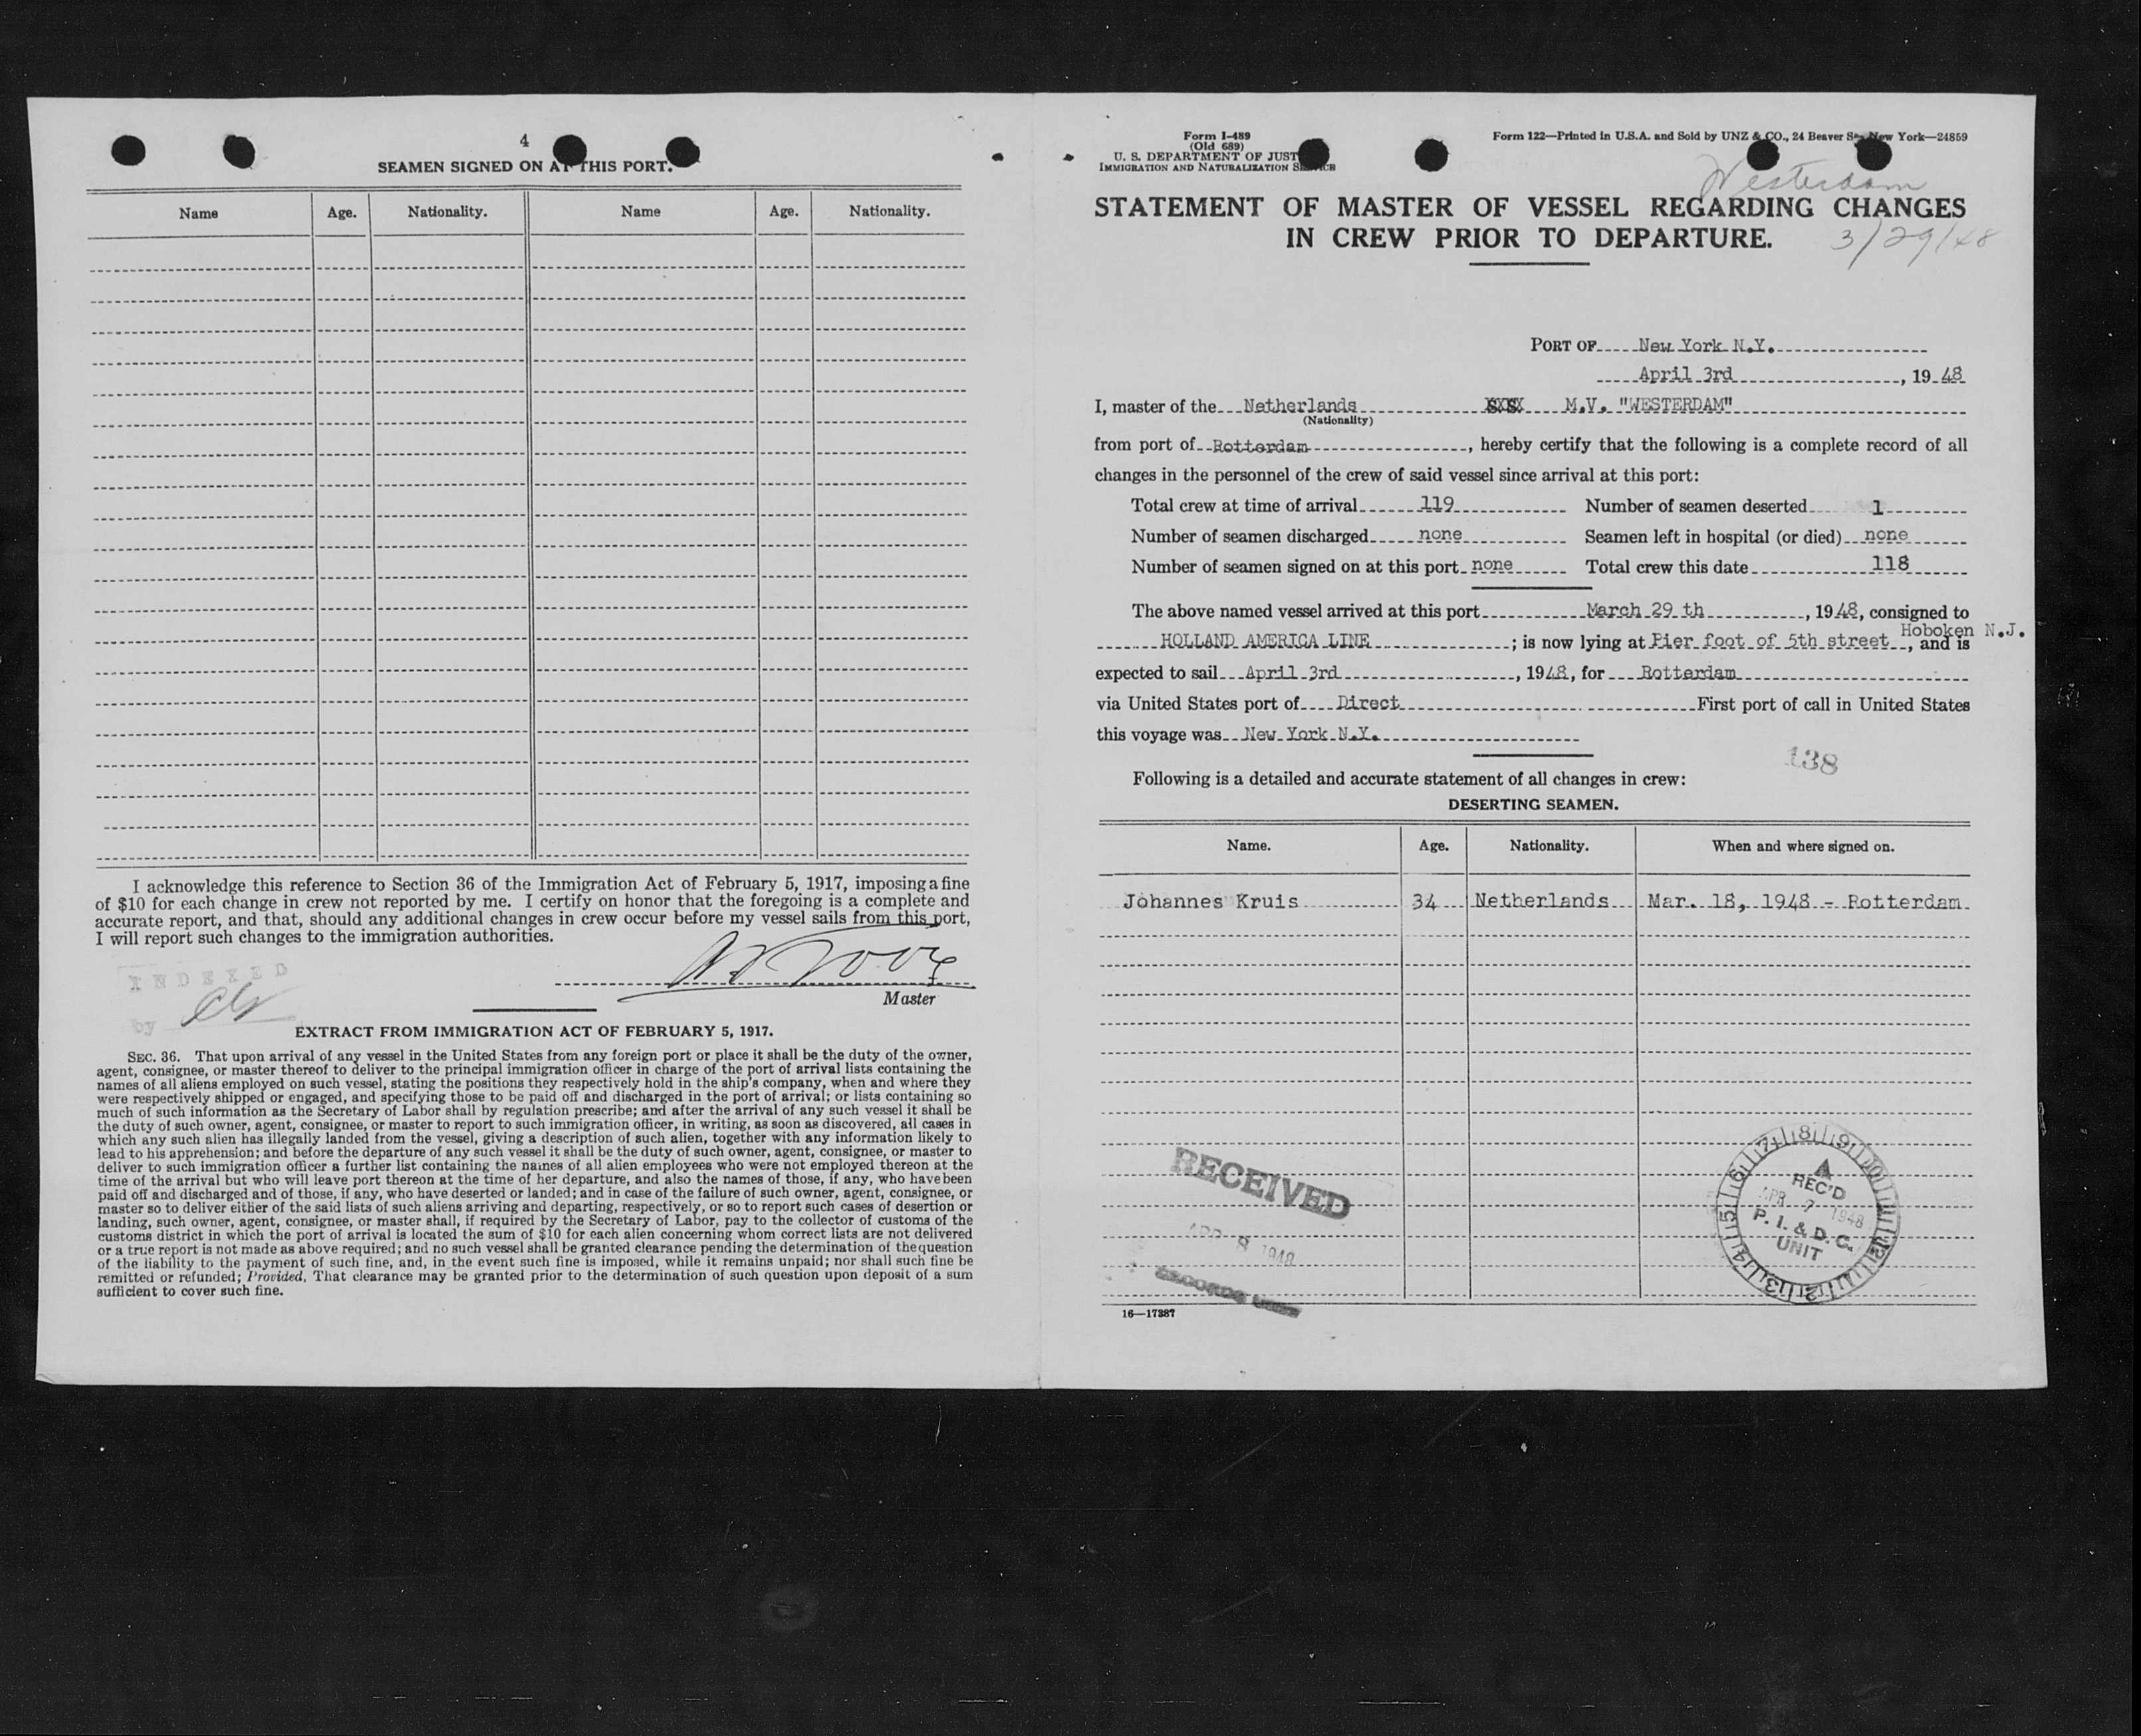 4
SEAMEN SIGNED ON AT THIS PORT.
Name Age. Nationality. Name Age. Nationality.
I acknowledge this reference to Section 36 of the Immigration Act of February 5, 1917, imposing a fine
of $10 for each change in crew not reported by me. I certify on honor that the foregoing is a complete and
accurate report, and that, should any additional changes in crew occur before my vessel sails from this port,
I will report such changes to the immigration authorities.
INDEXED
by
Master
EXTRACT FROM IMMIGRATION ACT OF FEBRUARY 5, 1917.
SEC. 36. That upon arrival of any vessel in the United States from any foreign port or place it shall be the duty of the owner,
agent, consignee, or master thereof to deliver to the principal immigration officer in charge of the port of arrival lists containing the
names of all aliens employed on such vessel, stating the positions they respectively hold in the ship's company, when and where they
were respectively shipped or engaged, and specifying those to be paid off and discharged in the port of arrival; or lists containing so
much of such information as the Secretary of Labor shall by regulation prescribe; and after the arrival of any such vessel it shall be
the duty of such owner, agent, consignee, or master to report to such immigration officer, in writing, as soon as discovered, all cases in
which any such alien has illegally landed from the vessel, giving a description of such alien, together with any information likely to
lead to his apprehension; and before the departure of any such vessel it shall be the duty of such owner, agent, consignee, or master to
deliver to such immigration officer a further list containing the names of all alien employees who were not employed thereon at the
time of the arrival but who will leave port thereon at the time of her departure, and also the names of those, if any, who have been
paid off and discharged and of those, if any, who have deserted or landed; and in case of the failure of such owner, agent, consignee, or
master so to deliver either of the said lists of such aliens arriving and departing, respectively, or so to report such cases of desertion or
landing, such owner, agent, consignee, or master shall, if required by the Secretary of Labor, pay to the collector of customs of the
customs district in which the port of arrival is located the sum of $10 for each alien concerning whom correct lists are not delivered
or a true report is not made as above required; and no such vessel shall be granted clearance pending the determination of the question
of the liability to the payment of such fine, and, in the event such fine is imposed, while it remains unpaid; nor shall such fine be
remitted or refunded; Provided, That clearance may be granted prior to the determination of such question upon deposit of a sum
sufficient to cover such fine.
Form I-489
(Old 689)
U. S. DEPARTMENT OF JUST
IMMIGRATION AND NATURALIZATION SERVICE
Form 122—Printed in U.S.A. and Sold by UNZ & CO., 24 Beaver St., New York—24859
Westerdam
STATEMENT OF MASTER OF VESSEL REGARDING CHANGES
IN CREW PRIOR TO DEPARTURE.
3/29/48
PORT OF New York N.Y.
April 3rd, 1948
I, master of the Netherlands XXSX M.V. "WESTERDAM"
(Nationality)
from port of Rotterdam, hereby certify that the following is a complete record of all
changes in the personnel of the crew of said vessel since arrival at this port:
Total crew at time of arrival 119 Number of seamen deserted 1
Number of seamen discharged none Seamen left in hospital (or died) none
Number of seamen signed on at this port none Total crew this date 118
The above named vessel arrived at this port March 29 th, 1948, consigned to
HOLLAND AMERICA LINE; is now lying at Pier foot of 5th street Hoboken N.J., and is
expected to sail April 3rd, 1948, for Rotterdam
via United States port of Direct First port of call in United States
this voyage was New York N.Y.
138
Following is a detailed and accurate statement of all changes in crew:
DESERTING SEAMEN.
Name. Age. Nationality. When and where signed on.
Johannes Kruis 34 Netherlands Mar. 18, 1948 - Rotterdam
RECEIVED
APR 8 1948
RECORDS UNIT
7 8 9 10 11 12 1 2 3 4 5 6
REC'D
APR 7 1948
P. I. & D. C.
UNIT
16—17387